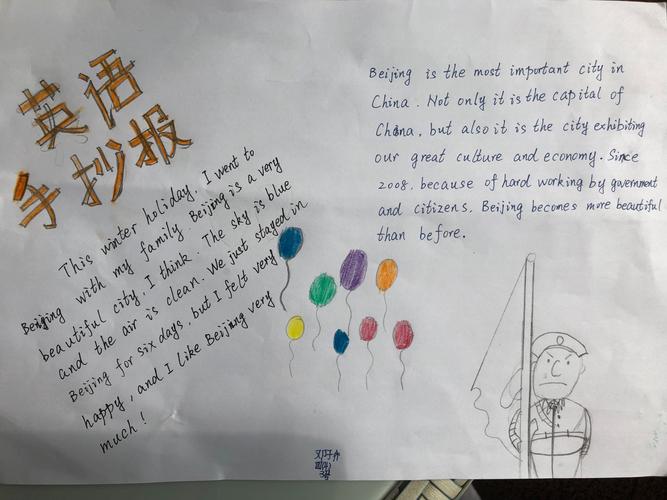 英语
手抄报
This winter holiday, I went to
Beijing with my family. Beijing is a very
beautiful city, I think. The sky is blue
and the air is clean. We just stayed in
Beijing for six days, but I felt very
happy, and I like Beijing very
much!
Beijing is the most important city in
China. Not only it is the capital of
China, but also it is the city exhibiting
our great culture and economy. Since
2008, because of hard working by government
and citizens, Beijing becomes more beautiful
than before.